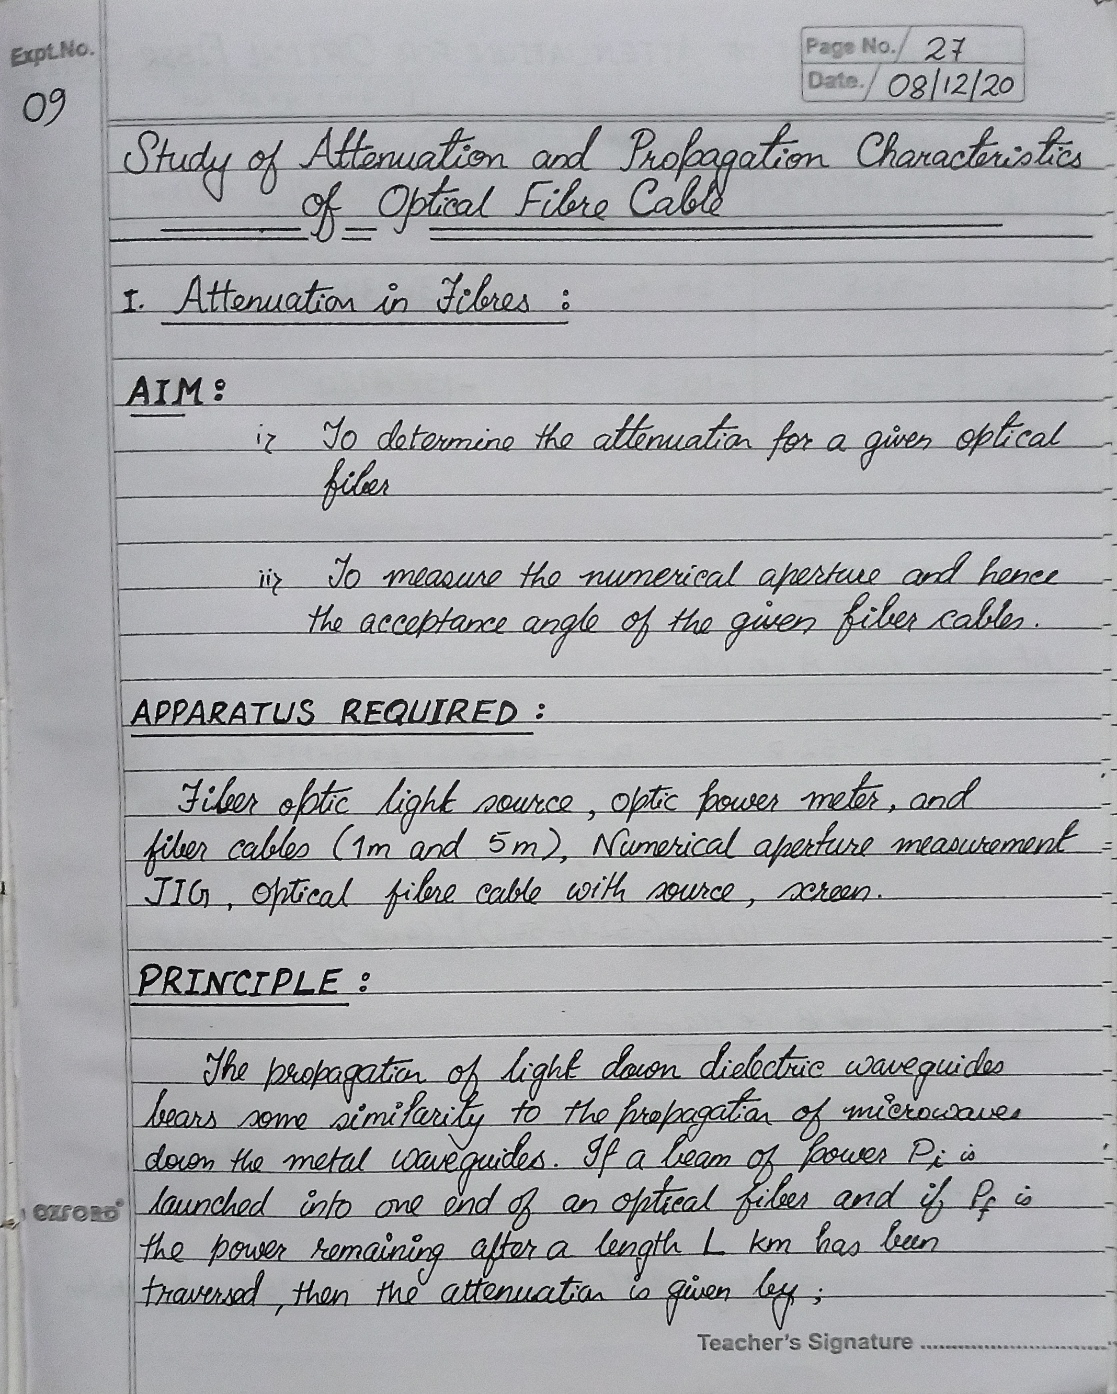 Expt.No.
09
Page No. 27
Date. 08/12/20
Study of Attenuation and Propagation Characteristics
of Optical Fibre Cable
I. Attenuation in Fibres :
AIM :
i) To determine the attenuation for a given optical
fiber
ii) To measure the numerical aperture and hence
the acceptance angle of the given fiber cables.
APPARATUS REQUIRED :
Fiber optic light source, optic power meter, and
fiber cables (1m and 5m), Numerical aperture measurement
JIG, Optical fibre cable with source, screen.
PRINCIPLE :
The propagation of light down dielectric waveguides
bears some similarity to the propagation of microwaves
down the metal waveguides. If a beam of power Pi is
launched into one end of an optical fiber and if Pf is
the power remaining after a length L km has been
traversed, then the attenuation is given by ;
OXFORD
Teacher's Signature ..............................